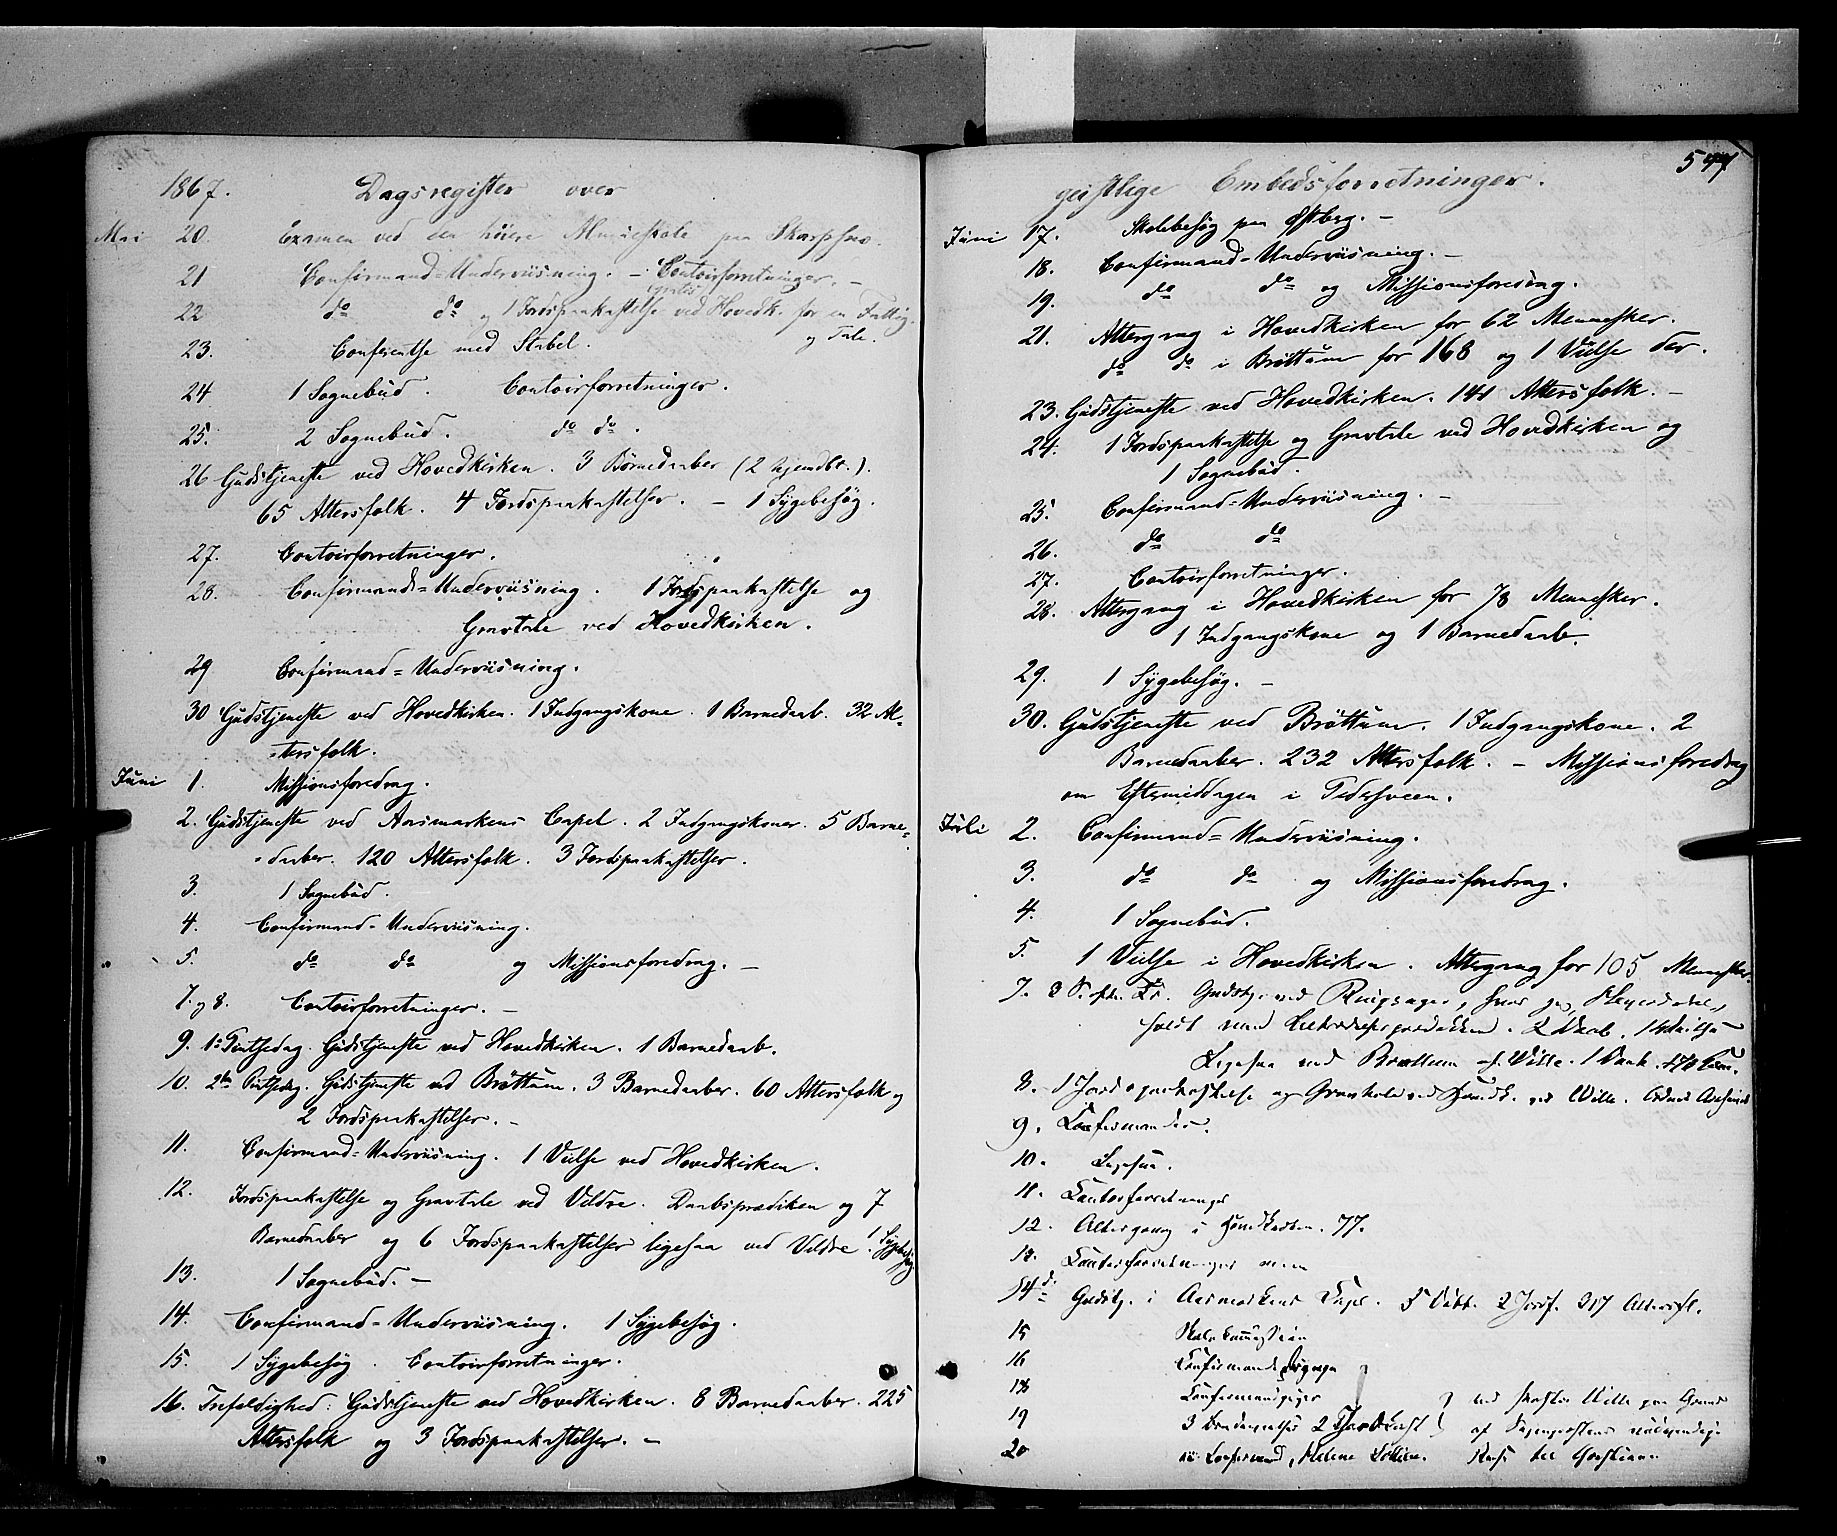 1867. Dagsregister over
Mai 20. Examen ved den høiere Almueskole paa Skarpsno.
21 Confirmand-Underviisning. – Contoirforretninger. –
gratis
22 do do og 1 Jordspaakastelse ved Hovedk. for en Fattig.
23. Conferentse med Stabel. og Tale.
24 1 Sognebud. Contoirforretninger.
25. 2 Sognebud. do do.
26 Gudstjeneste ved Hovedkirken. 3 Børnedaaber (2 hjemdbt.).
65 Altersfolk. 4 Jordspaakastelser. – 1 Sygebesøg.
27. Contoirforretninger.
28. Confirmand=Underviisning. 1 Jordspaakastelse og
Gravtale ved Hovedkirken.
29 Confirmand=Underviisning.
30 Gudstjeneste ved Hovedkirken. 1 Indgangskone. 1 Barnedaab. 32 Al-
tersfolk.
Juni 1. Missionsforedrag.
2. Gudstjeneste ved Aasmarkens Capel. 2 Indgangskoner. 5 Barne-
daaber. 120 Altersfolk. 3 Jordspaakastelser.
3. 1 Sognebud.
4. Confirmand-Underviisning.
5. do do og Missionsforedrag. –
7. og 8. Contoirforretninger. –
9. 1ste Pintsedag. Gudstjeneste ved Hovedkirken. 1 Barnedaab.
10. 2den Pintsedag. Gudstjeneste ved Brøttum. 3 Barnedaaber. 60 Altersfolk og
2 Jordspaakastelser. –
11. Confirmand-Underviisning. 1 Vielse ved Hovedkirken.
12. Jordspaakastelse og Gravtale ved Veldre. Daabsprædiken og 7
Barnedaaber og 6 Jordspaakastelser ligesaa ved Veldre. 1 Sygebesøg
13. 1 Sognebud. –
14. Confirmand-Underviisning. 1 Sygebesøg.
15. 1 Sygebesøg. Contoirforretninger.
16. Trefoldighed: Gudstjeneste ved Hovedkirken. 8 Barnedaaber. 225
Altersfolk og 3 Jordspaakastelser. –
547
geistlige Embedsforretninger.
Juni 17. Skolebesøg paa Østberg. –
18. Confirmand-Underviisning. –
19. do do og Missionsforedrag.
21. Altergang i Hovedkirken for 62 Mennesker.
do do i Brøttum for 168 og 1 Vielse der.
23. Gudstjeneste ved Hovedkirken. 141 Altersfolk. –
24. 1 Jordspaakastelse og Gravtale ved Hovedkirken og
1 Sognebud.
25. Confirmand-Underviisning. –
26. do do
27. Contoirforretninger.
28. Altergang i Hovedkirken for 78 Mennesker.
1 Indgangskone og 1 Barnedaab.
29. 1 Sygebesøg. –
30. Gudstjeneste ved Brøttum. 1 Indgangskone. 2
Barnedaaber. 232 Altersfolk. – Missionsforedrag
om Eftermiddagen i Pedersveen.
Juli 2. Confirmand=Underviisning.
3. do do og Missionsforedrag.
4. 1 Sognebud.
5. 1 Vielse i Hovedkirken. Altergang for 105 Mennesker.
7. 3 S. eft. Tr. Gudstj. ved Ringsager, hvor jeg,
holdt 2 Daab.
Ligesaa ved Brøttum af Wille. 1 Daab.
8. 1 Jordspaakastelse og Gravtale ved Hovedk. ved Wille.
9. Confirmander.
10. Ligesaa.
11. Contorforretninger
12. Altergang i Hovedkirken. 77.
13. Contorforretninger
14de Gudstj. i Aasmarkens Capel. 5 Døbt. 2 Jordf. 317 Altersfl.
15 Skolecommission
16 Confirmand
18 Confirmand
19 3 2
20 Confirmand, Helene
ved Pastor Wille paa Grund
af Sogneprestens nødvendige
Reise til Christiania